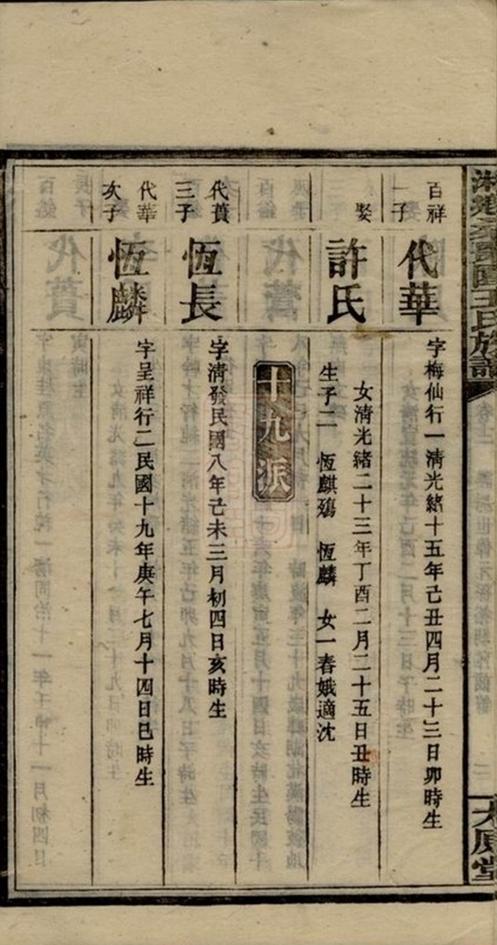 王氏族譜
百祥一子
代華
字梅仙行一清光緒十五年己丑四月二十三日卯時生
娶
許氏
女清光緒二十三年丁酉二月二十五日丑時生
生子二 恆麒殤 恆麟 女一春娥適沈
十九派
代蕢三子
恆長
字清發民國八年己未三月初四日亥時生
代華次子
恆麟
字呈祥行二民國十九年庚午七月十四日巳時生